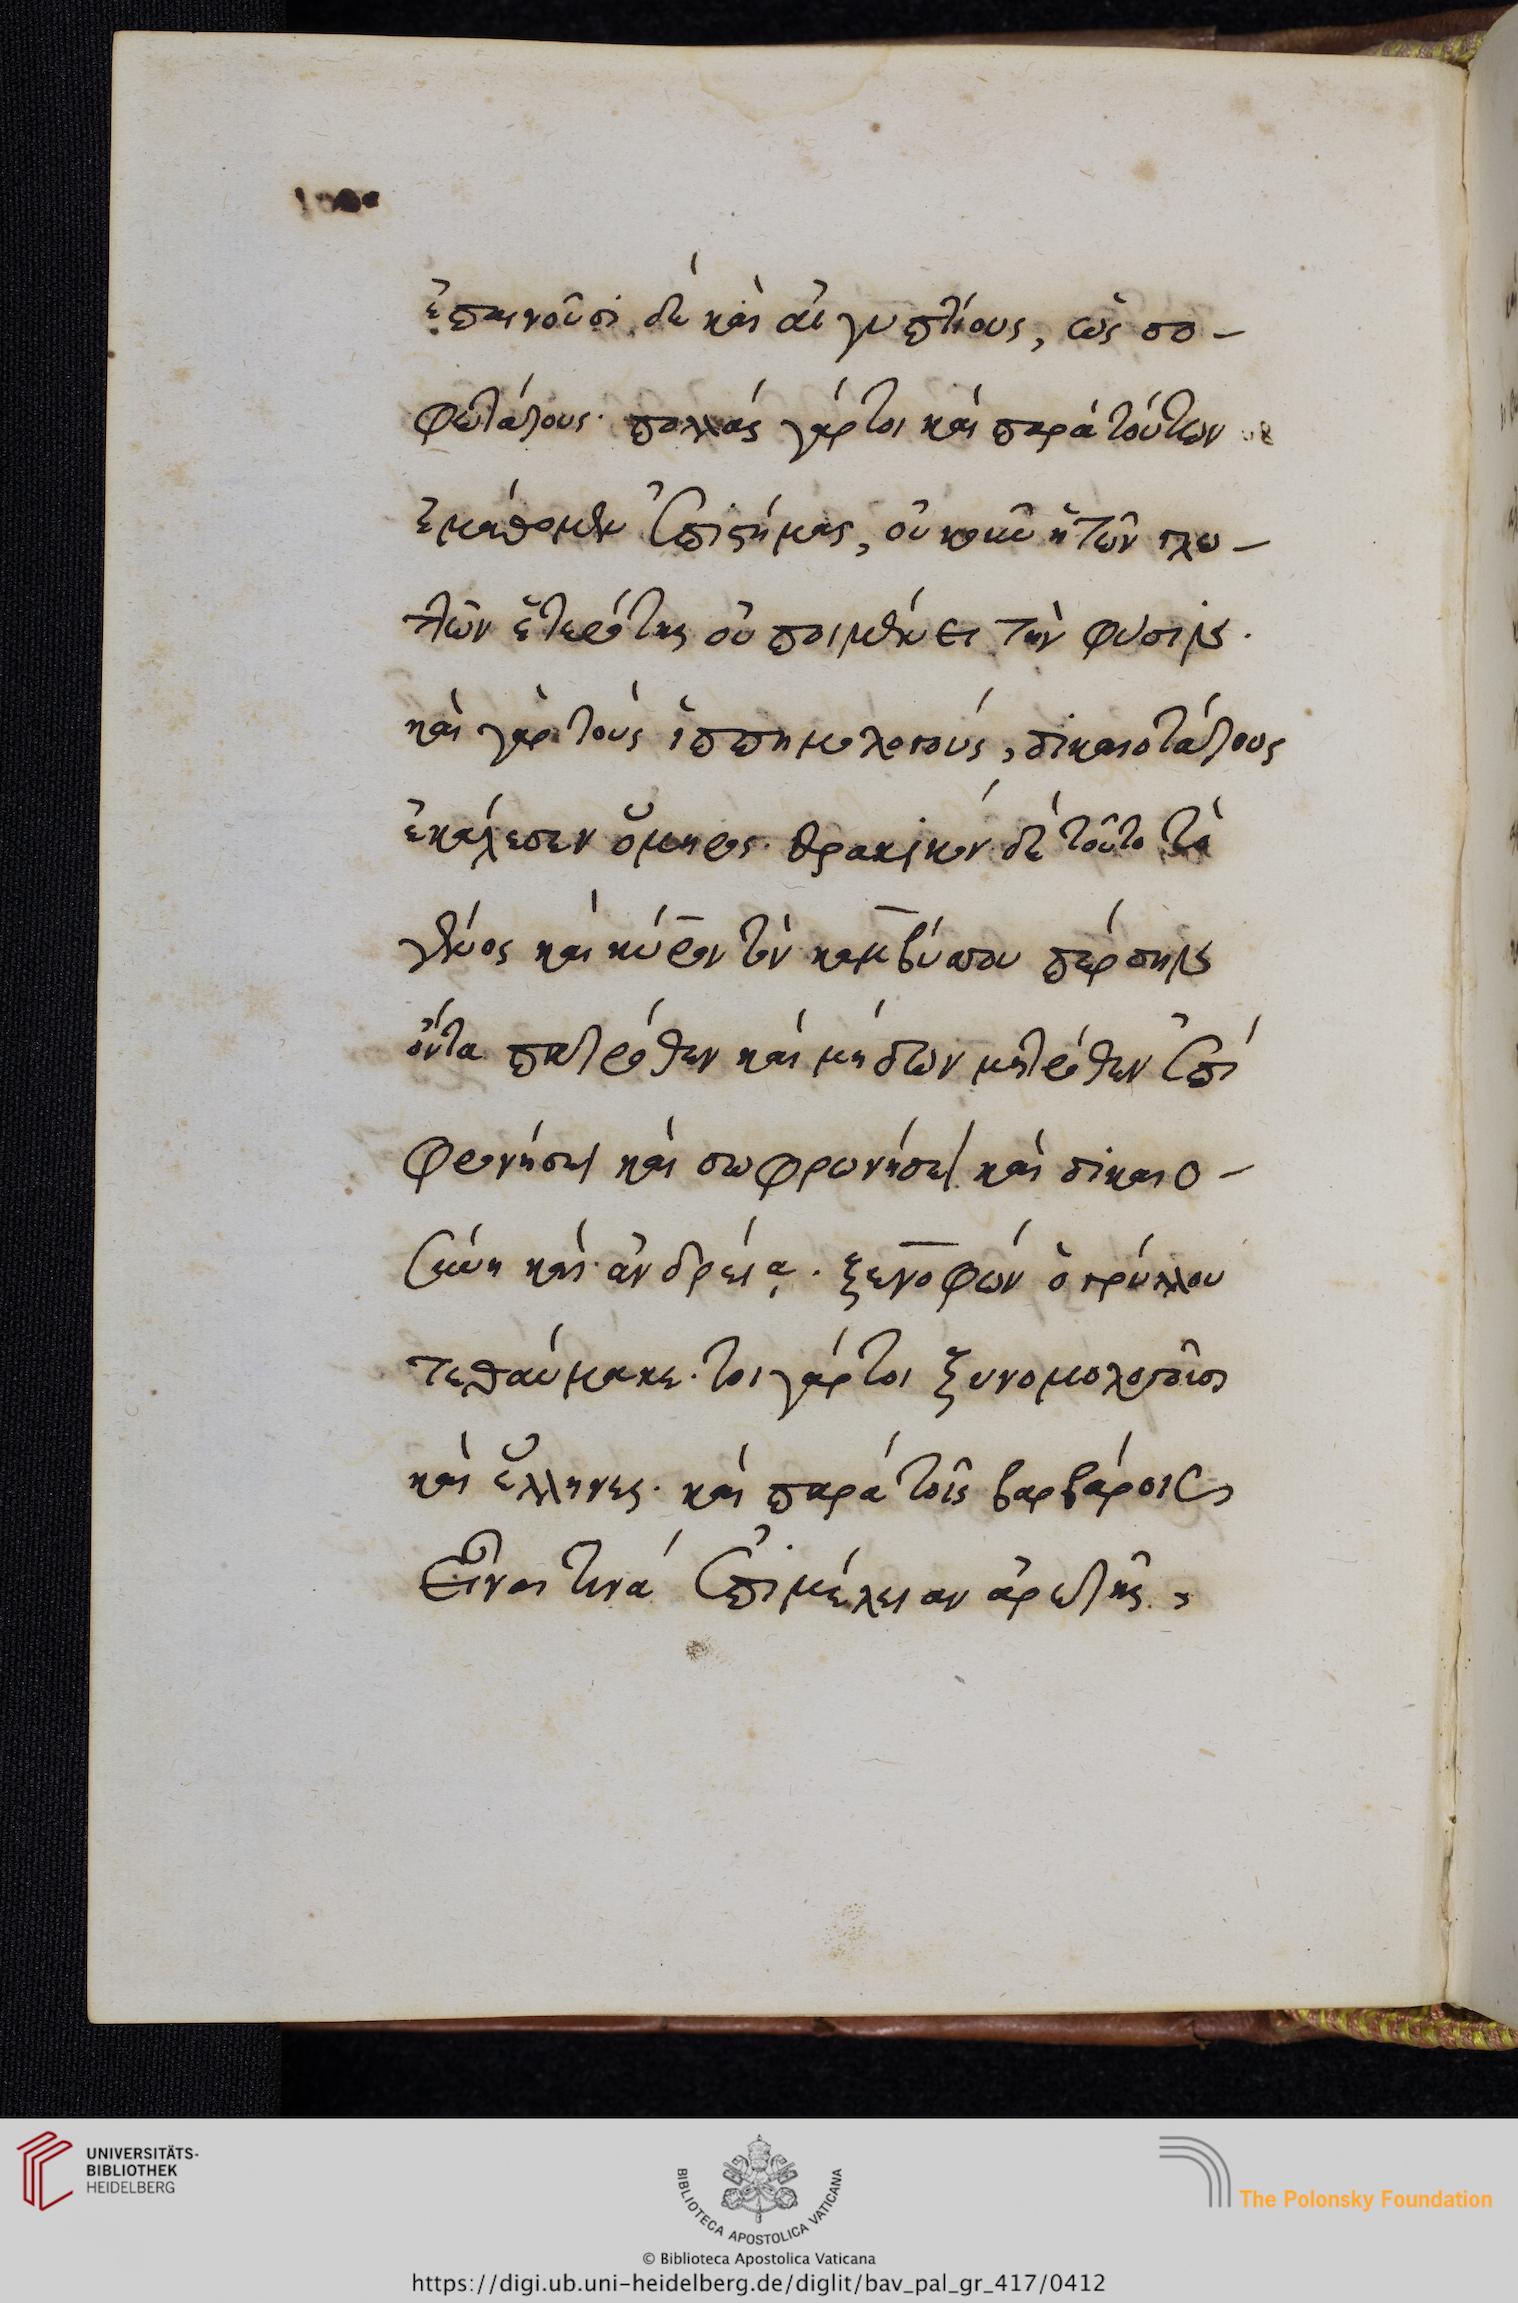 ἐπαινοῦσι δὲ καὶ αἰγυπτίους, ὡς σο-
φωτάτους· πολλὰς γάρτοι καὶ παρὰ τούτων
ἐμάθομεν ἐπιστήμας, οὐκοῦν ἡ τῶν γλω-
τῶν ἑτερότης οὐ ποιμένει τὴν φύσιν·
καὶ γὰρ τοὺς ἱππημολγοὺς, δικαιοτάτους
ἐκάλεσεν ὅμηρος· θρακικὸν δὲ τοῦτο τὸ
γένος καὶ κύρον τὸν καμβύσου πέρσην
ὄντα πατρόθεν καὶ μήδων μητρόθεν ἐπὶ
φρονήσει καὶ σωφρονήσει καὶ δικαιο-
σύνη καὶ ἀνδρεία· ξενοφῶν ὁ γρύλλου
τεθαύμακε· τοιγάρτοι ξυνομολογοῦσι
καὶ ἕλληνες· καὶ παρὰ τοῖς βαρβάροις
εἶναι τινὰ ἐπιμέλειαν ἀρετῆς,
UNIVERSITÄTS-
BIBLIOTHEK
HEIDELBERG
BIBLIOTECA APOSTOLICA VATICANA
The Polonsky Foundation
© Biblioteca Apostolica Vaticana
https://digi.ub.uni-heidelberg.de/diglit/bav_pal_gr_417/0412